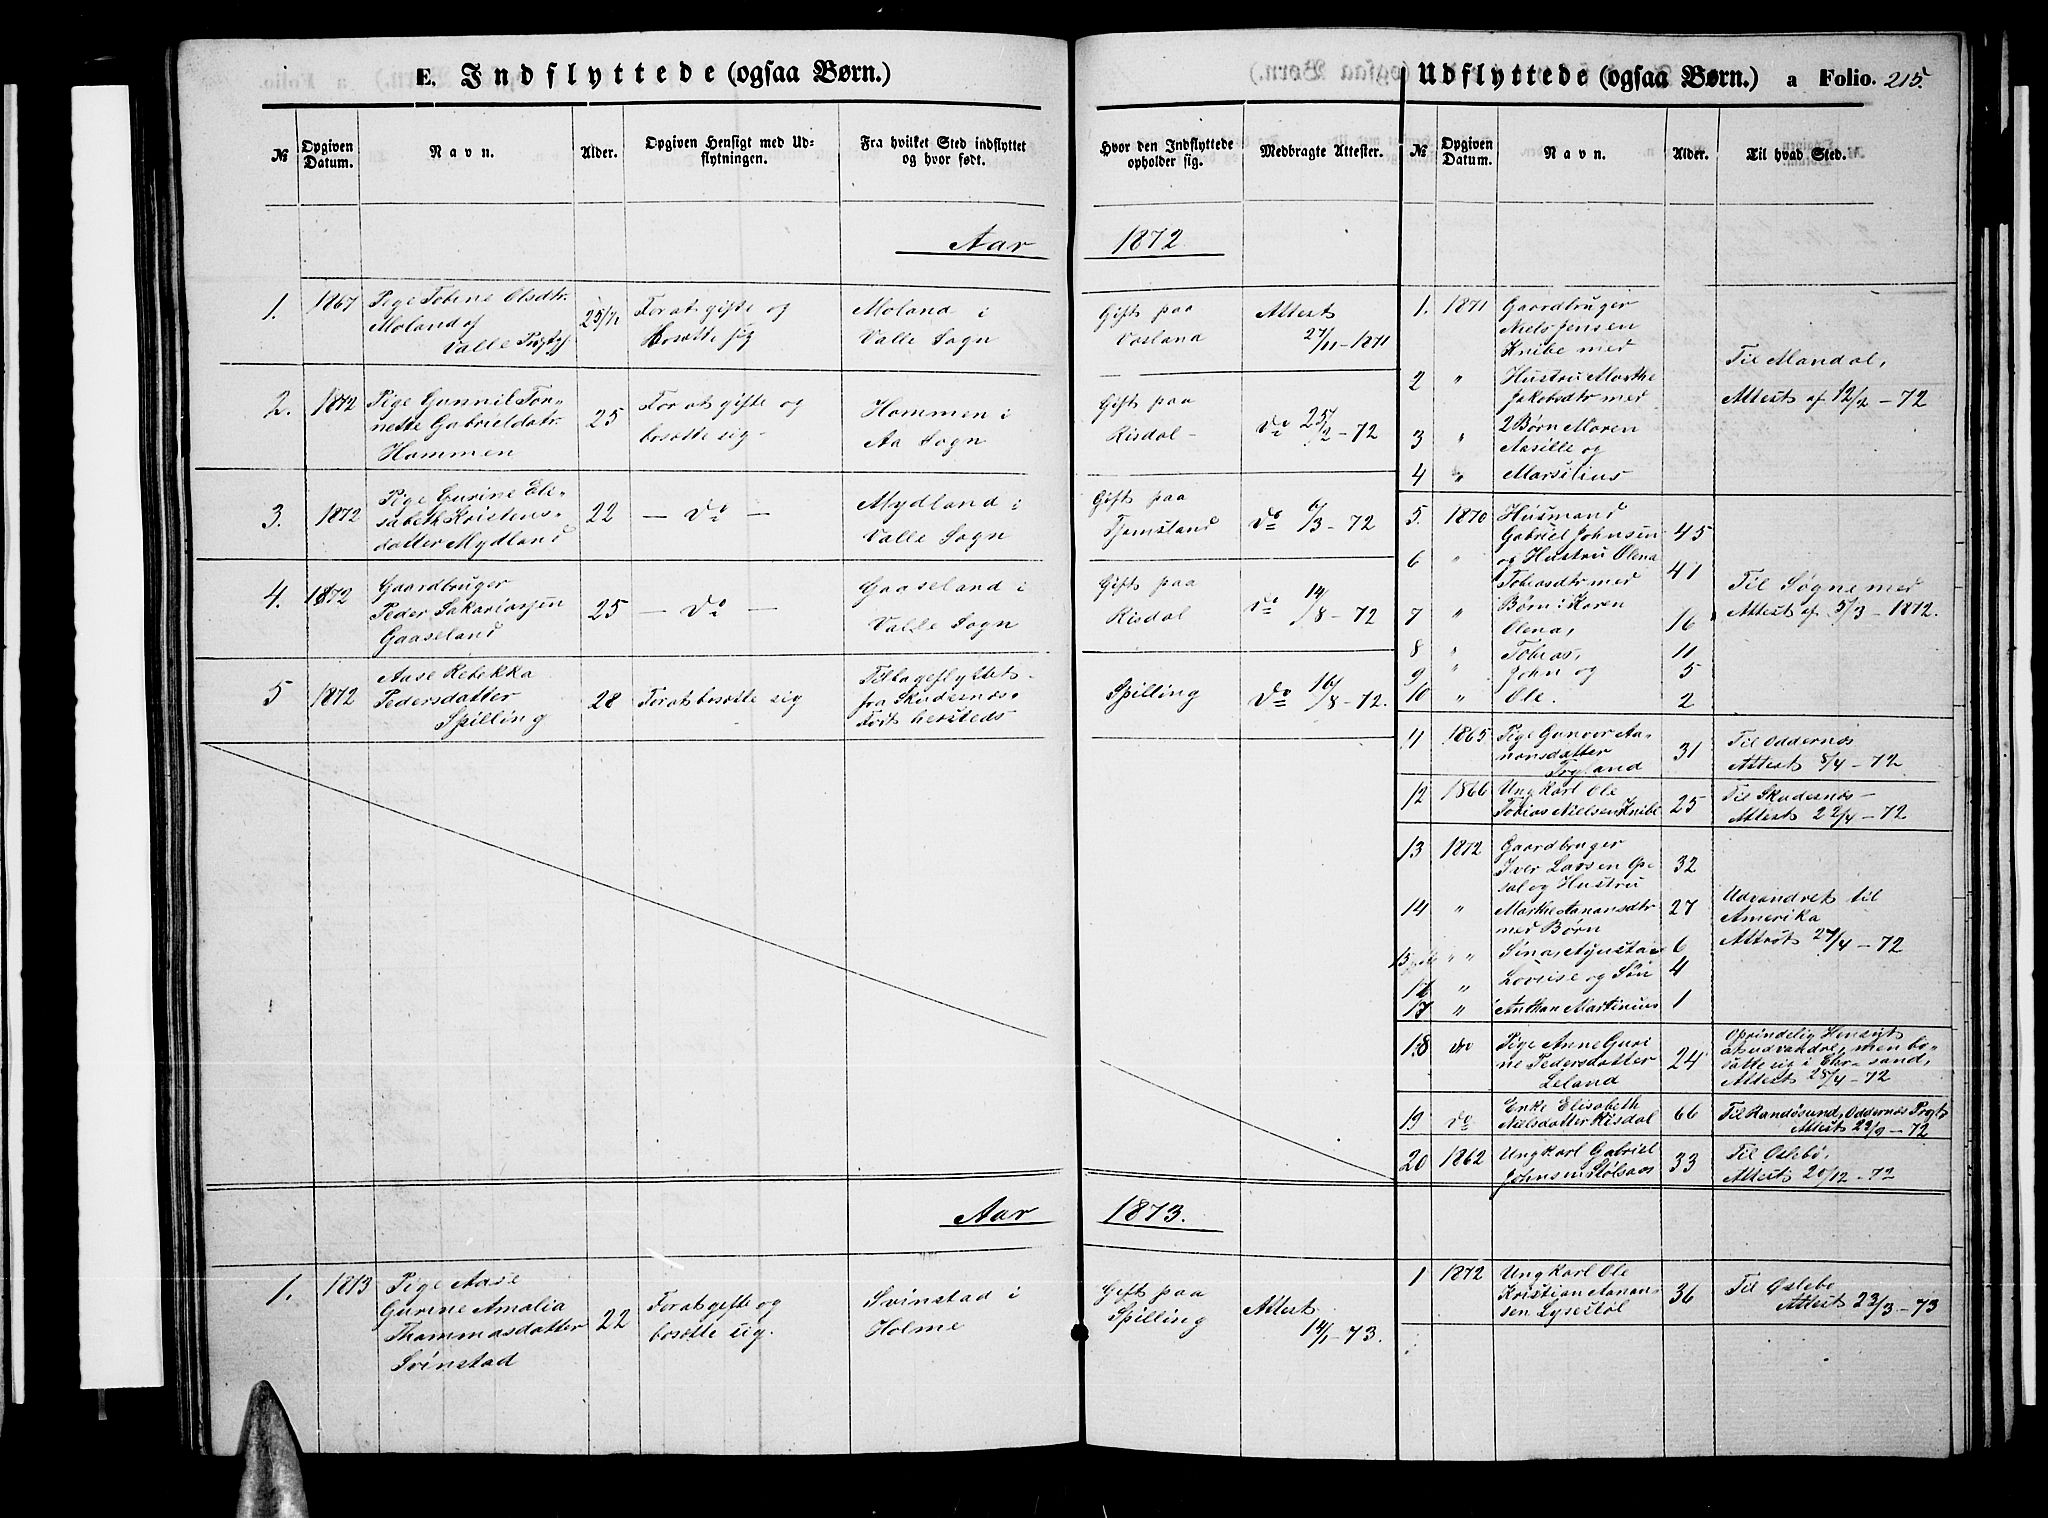 E. Indflyttede (ogsaa Børn.)
№
Opgiven Datum.
Navn.
Alder.
Opgiven Hensigt med Udflytningen.
Fra hvilket Sted indflyttet og hvor født.
Aar
1. 1867 Pige Tobine Olsdtr. 25 For at gifte og Moland i
Moland af bosætte sig Valle Sogn
Valle
2. 1872 Pige Gunnil Tor= 25 For at gifte og Hommen i
neste Gabrielsdatr. bosætte sig - Aa Sogn
Hommen
3. 1872 Pige Gurine Eli= 22 - Do - Mydland i
sabeth Kristens= Valle Sogn
datter Mydland
4. 1872 Gaardbruger 25 - Do - Gaaseland i
Peder Sakariassen Valle Sogn
Gaaseland
5 1872 Aase Rebekka 28 For at bosætte sig Tilbageflyttet
Pedersdatter fra Skudesnæs.
Spilling Født hersteds
Aar
1. 1873 Pige Aase 22 For at gifte og Svinstad i
Gurine Amalia bosætte sig. Holme
Thommasdatter
Svinstad
Udflyttede (ogsaa Børn.) a Folio. 215.
Hvor den Indflyttede opholder sig.
Medbragte Attester.
№
Opgiven Datum.
Navn.
Alder.
Til hvad Sted.
1872
Gift paa Attest
27/11-1871
Gift paa Do 25/2-72
Risdal -
Gift paa Do 6/3-72
Tjomsland
Gift paa Do 14/8-72
Risdal
Spilling Do 16/8-72.
1873.
Gift paa Attest
Spilling 14/1-73.
1. 1871 Gaardbruger
Niels Jensen
Knibe med Til Mandal,
2 " Hustru Marthe Attest af 12/2 - 72
Jakobsdtr med
3 " 2 Børn Maren
Aasille og
4 " Marsilius
5. 1870 Husmand
Gabriel Johnsen 45
6 " og Hustru Olena 41 Til Søgne med
Tobiasdtr med Attest af 5/3 - 1872.
7 " Børn: Karen
Olena, 16
8 " Tobias, 11
9 " John og 5
10 " Ole. 2
11 1865 Pige Gunver Aa= 31 Til Oddernæs
nonsdatter Attest 8/4 - 72
Tryland
12 1866 Ungkarl Ole 25 Til Skudesnæs -
Tobias Nielsen Knibe Attest 22/4 - 72
13 1872 Gaardbruger
Iver Larsen Op= 32
sal og Hustru
14 " Marthe Aanansdtr 27 Udvandret til
med Børn Amerika
" " 6 Attest 27/4 - 72
16 " Lovise og Søn 4
17 " Anthan Martinius 1
18 do Pige Anne Guri= 24 Oprindelig Hensigt
ne Pedersdatter at udvandre, men bo=
Leland satte sig i sand,
Attest 28/4 - 72
19 Do Enke Elisabeth 66 Til Randøsund, Oddernæs Prgt.
Nielsdatter Risdal Attest 23/9 - 72
20 1862 Ungkarl Gabriel 33 Til Øslebø,
Johnsen Stølsaas Attest 20/12 - 72
1 1872 Ungkarl Ole 36 Til Øslebø
Kristian Aanan= Attest 23/3 - 73
sen Lysestøl